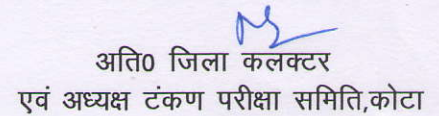 अति0 जिला कलक्टर
एवं अध्यक्ष टंकण परीक्षा समिति,कोटा